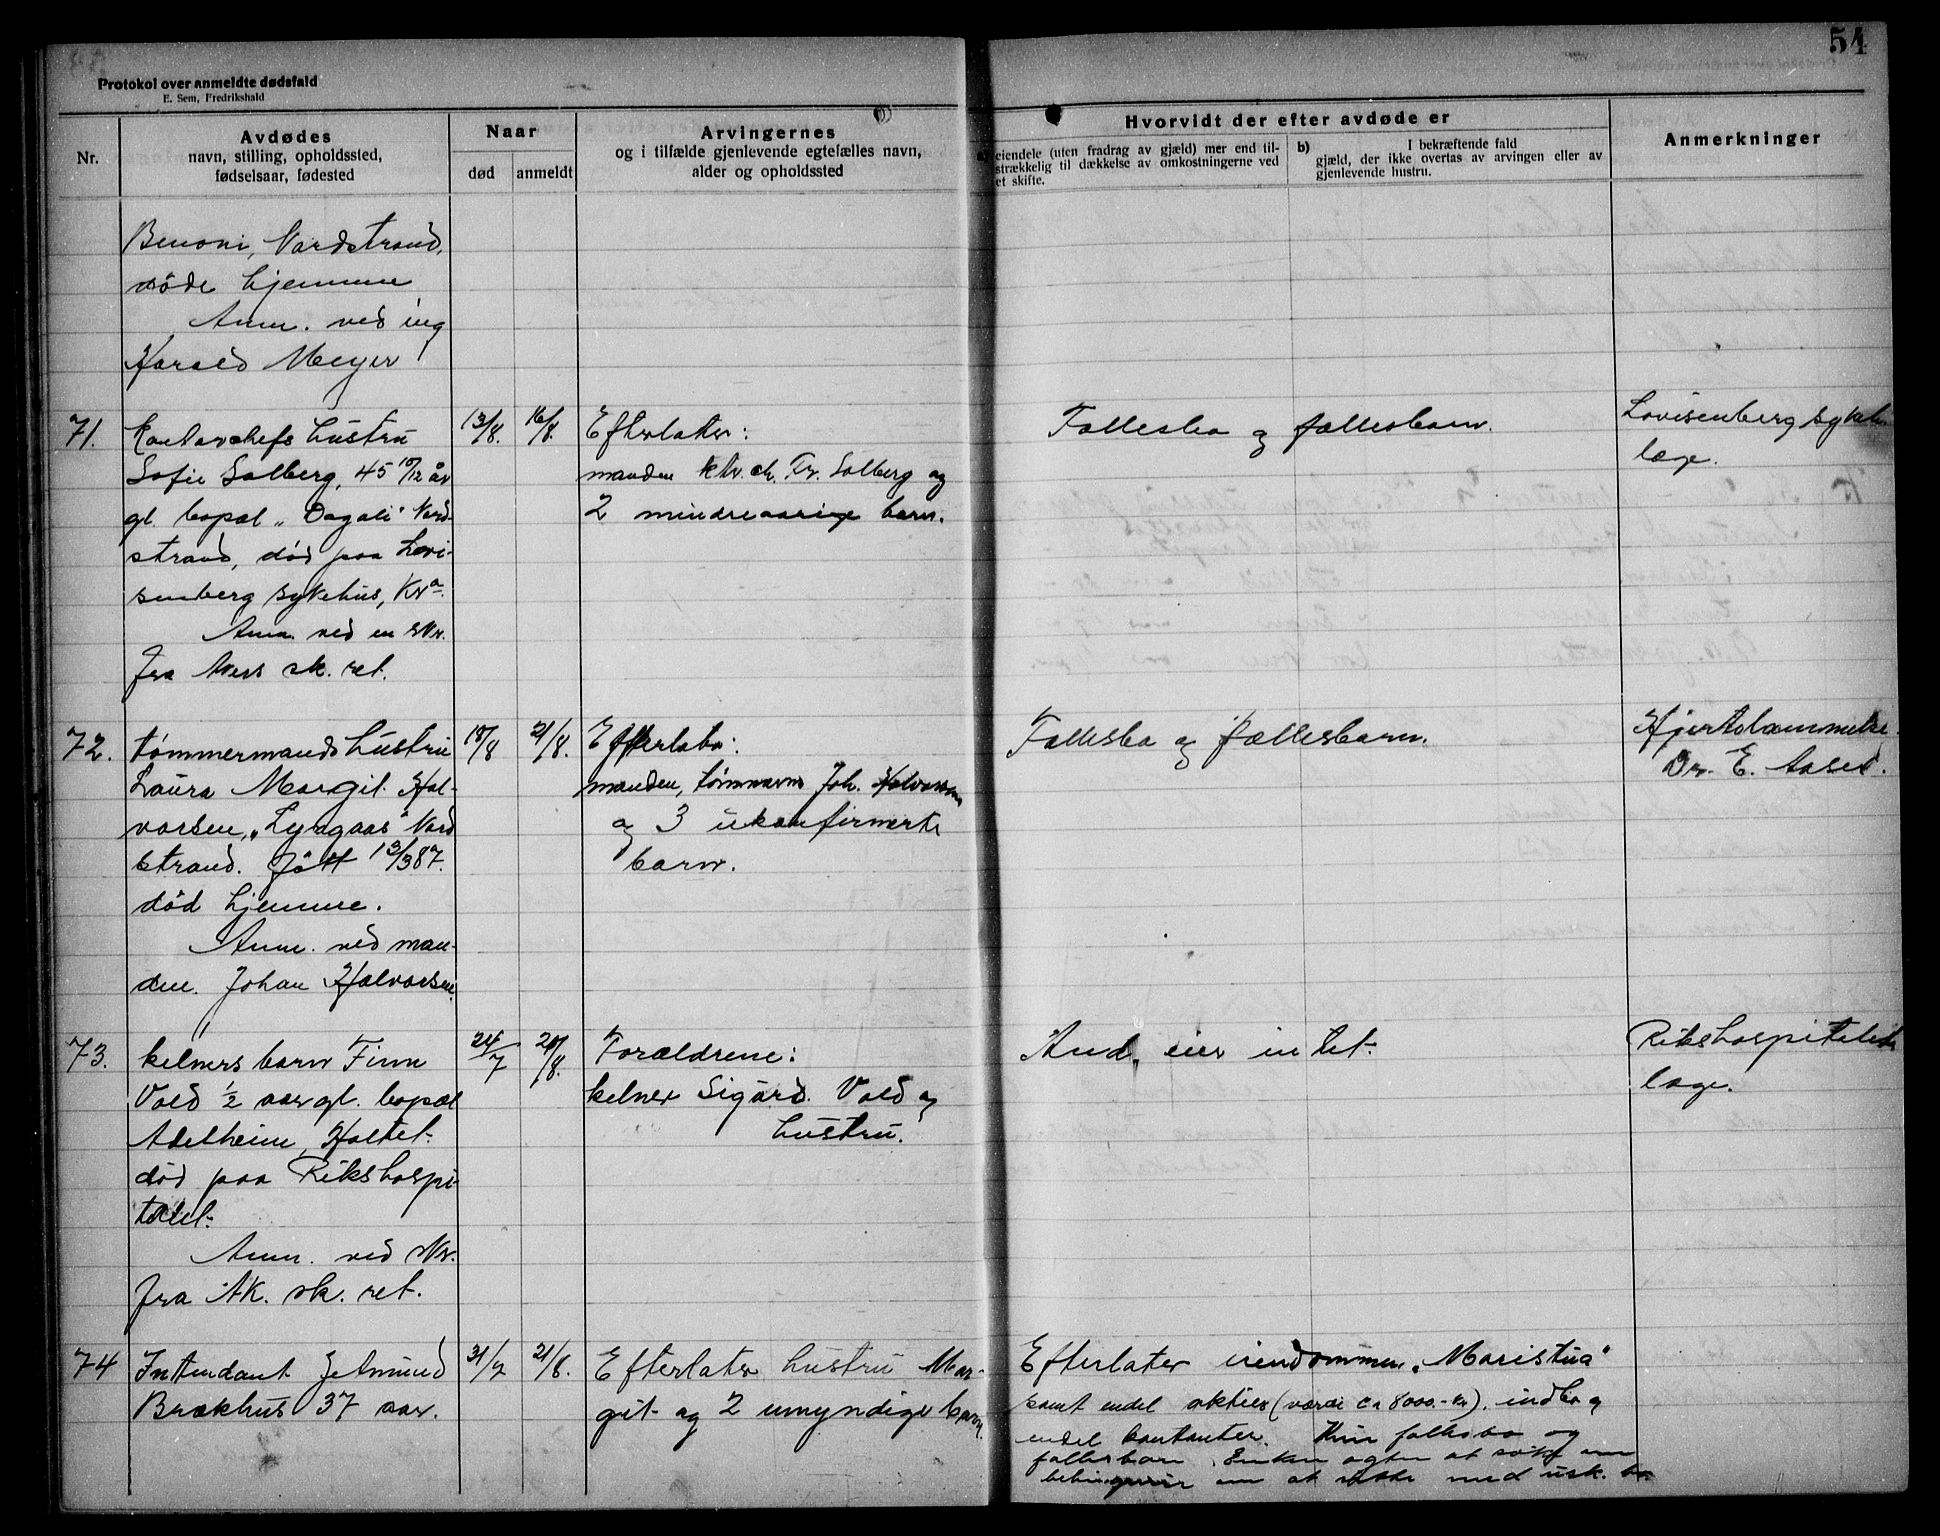 54
Protokol over anmeldte dødsfald
E. Sem, Fredrikshald
Nr.
Avdødes
navn, stilling, opholdssted,
fødselsaar, fødested
Naar
død
anmeldt
Arvingernes
og i tilfælde gjenlevende egtefælles navn,
alder og opholdssted
Hvorvidt der efter avdøde er
eiendele (uten fradrag av gjæld) mer end til-
strækkelig til dækkelse av omkostningerne ved
et skifte.
b)
I bekræftende fald
gjæld, der ikke overtas av arvingen eller av
gjenlevende hustru.
Anmerkninger
Benoni, Nordstrand,
døde hjemme
Anm. ved ing
Harald Meyer
71.
Kontorchefs hustru
Sofie Solberg, 45 10/12 år
gl. bopæl "Dagali" Nord-
strand, død paa Lovi-
senberg sykehus, Kra.
Anm. ved en skr.
fra Akers sk. ret.
13/8.
16/8.
Efterlater:
manden ktr. ch. Fr. Solberg og
2 mindreaarige barn.
Fællesbo og fællesbarn.
Lovisenberg sykeh.
læge.
72.
tømmermands hustru
Laura Margit Hal-
vorsen, "Lyngaas" Nord
strand. Født 13/3 87.
død hjemme.
Anm. ved man-
den. Johan Halvorsen.
18/8
21/8.
Efterlater:
manden, tømmerm Joh. Halvorsen
og 3 ukonfirmerte
barn.
Fællesbo og fællesbarn.
Hjertelammelse.
Dr. E. Aaser.
73.
kelners barn Finn
Vold ½ aar gl. bopæl
Adelheim, Holtet.
død paa Rikshospi-
talet.
Anm. ved skr.
fra AK. sk. ret.
24/7
20/8.
Forældrene:
kelner Sigurd Vold og
hustru.
Und. eier intet.
Rikshospitalets
læge.
74
Intendant Jetmund
Brækhus 37 aar.
31/7
21/8.
Efterlater hustru Mar-
git og 2 umyndige barn.
Efterlater eiendommen "Maristua"
samt endel aktier (værdi ca 8000.- kr). indbo og
endel kontanter. Kun fællesbo og
fællesbarn. Enken agter at søke om
om at sidde med usk. bo